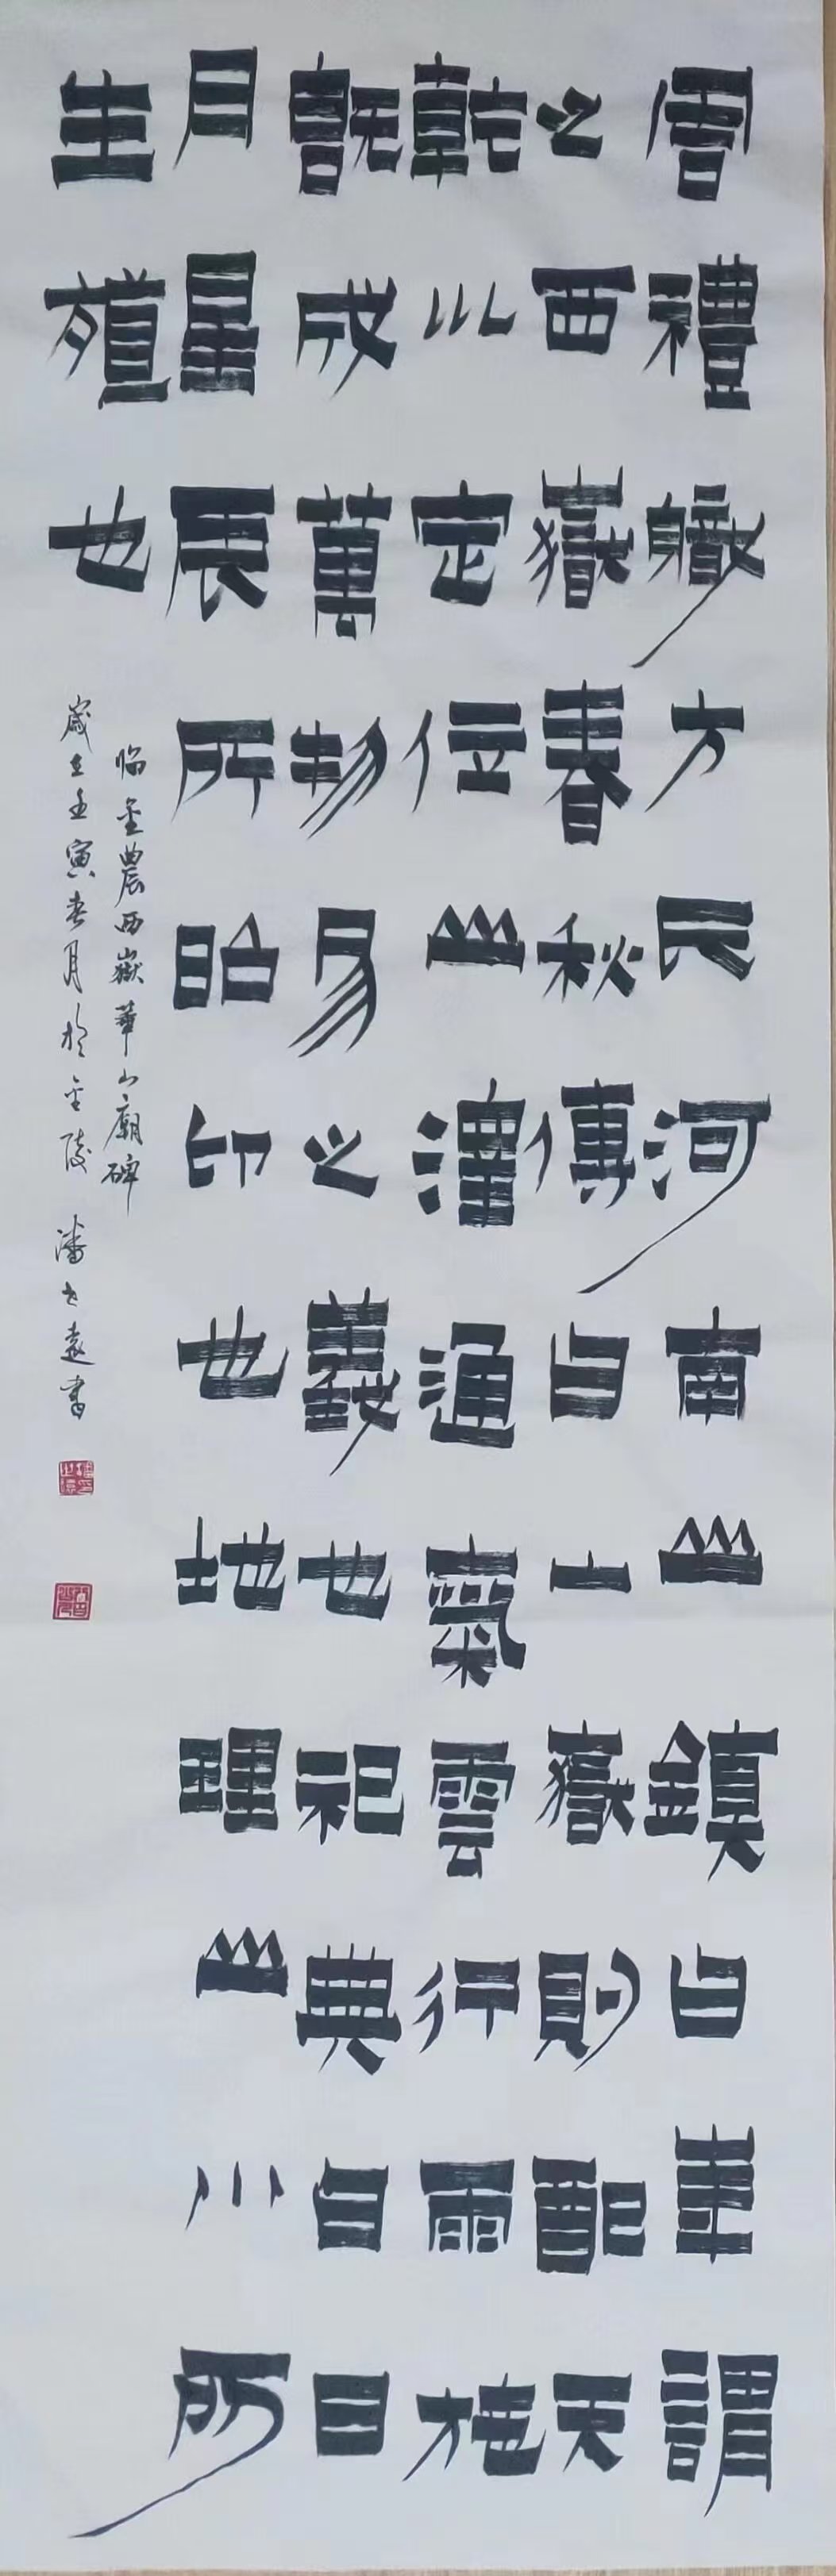 周禮職方氏河南山鎮曰華謂
之西嶽春秋傳曰山嶽則配天
乾巛定位山澤通氣雲行雨施
既成萬物易之義也祀典曰日
月星辰所昭卬也地理山川所
生殖也
临金農西嶽華山廟碑
歲在壬寅春月於金陵 潘世遠書